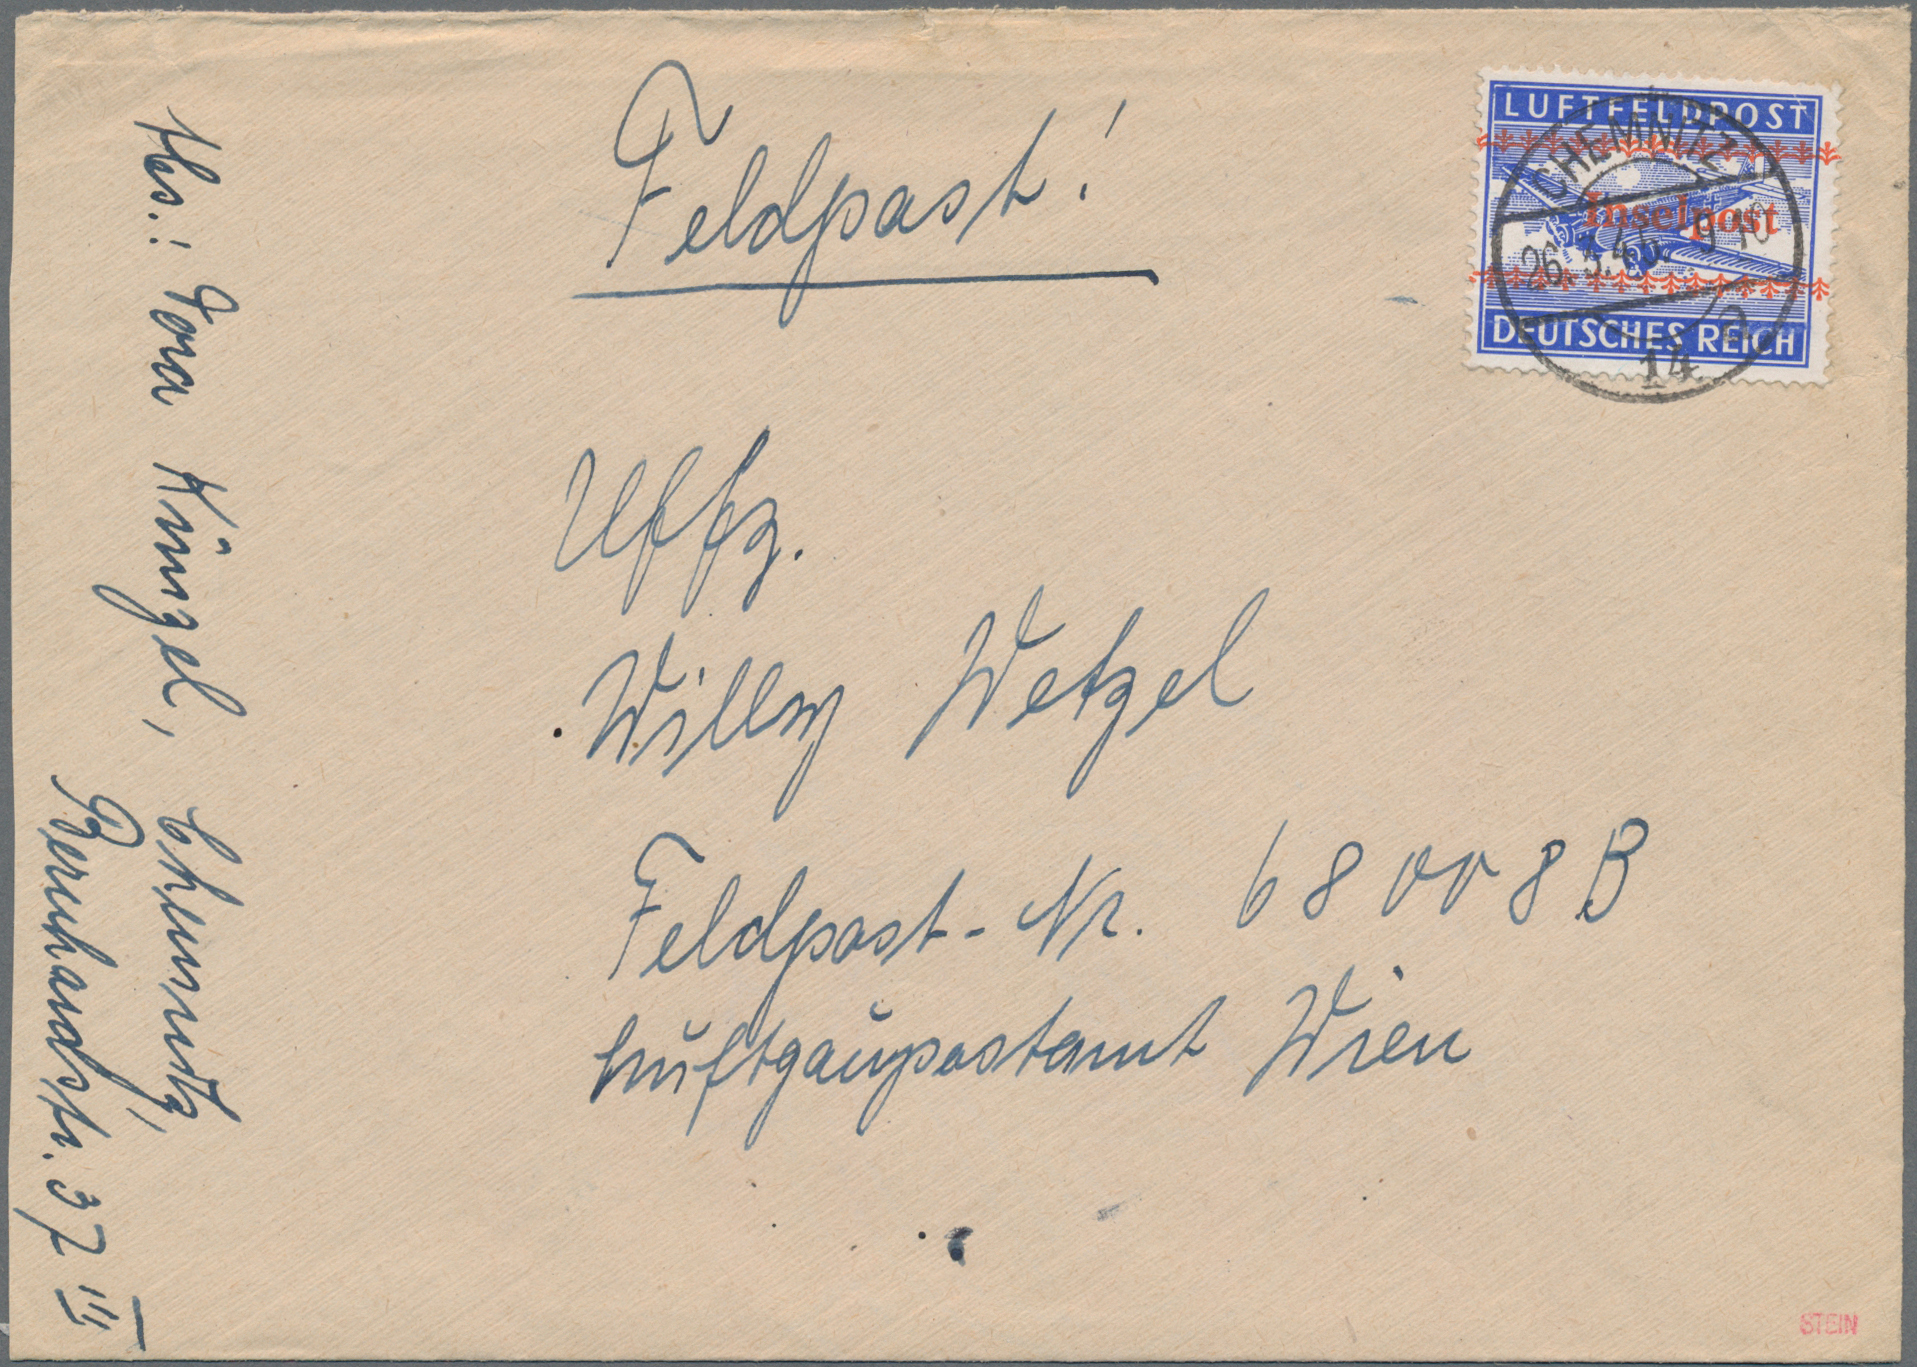 Feldpost!
LUFTFELDPOST
Inselpost
DEUTSCHES REICH
CHEMNITZ
26.3.45. 9-10
14
Uffz.
Willy Wetzel
Feldpost-Nr. 68008B
Luftgaupostamt Wien
Abs.: Künzel, Chemnitz,
Bernhardstr. 37 III
STEIN